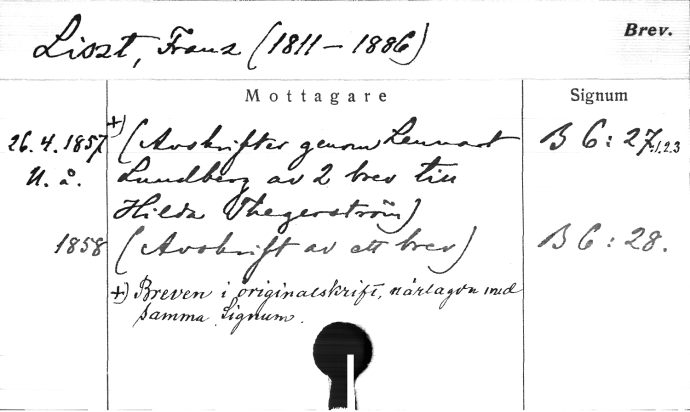 Liszt, Franz (1811 – 1886)
Brev.
Mottagare
Signum
26.4.1857 +) (Avskrifter genom Lennart B 6:27.1,2,3
U. å. Lundberg av 2 brev till
Hilda Thegerström)
1858 (Avskrift av ett brev) B 6:28.
+) Breven i originalskrift, med
samma signum.